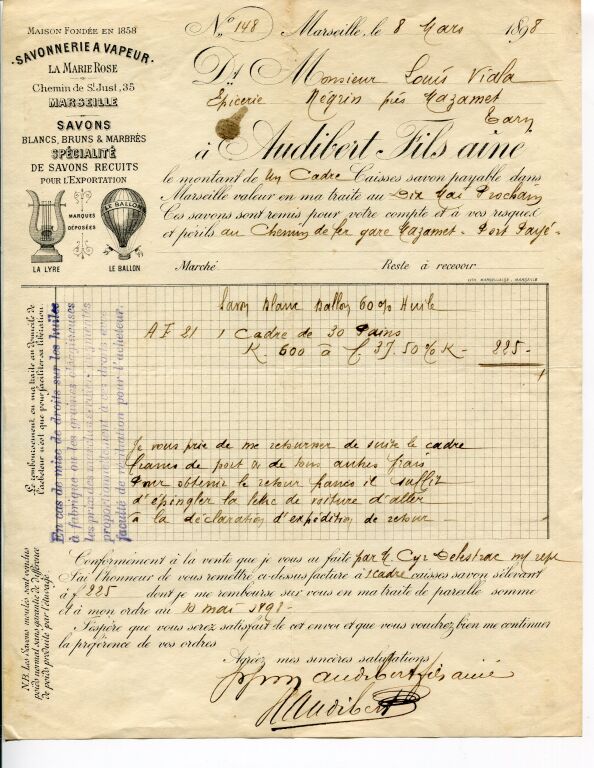 MAISON FONDÉE EN 1858
SAVONNERIE A VAPEUR
LA MARIE ROSE
Chemin de St Just, 35
MARSEILLE
SAVONS
BLANCS, BRUNS & MARBRÉS
SPÉCIALITÉ
DE SAVONS RECUITS
POUR L'EXPORTATION
MARQUES
DÉPOSÉES
LE BALLON
LA LYRE
LE BALLON
No 148 Marseille, le 8 Mars 1898
Dt Monsieur Louis Viala
Epicerie Négrin près Mazamet
Tarn
à Audibert Fils aîné
le montant de Un Cadre Caisses savon payable dans
Marseille valeur en ma traite au Dix Mai Prochain
Ces savons sont remis pour votre compte et à vos risques
et périls au Chemin de fer gare Mazamet - Port Payé -
Marché Reste à recevoir
Savon Blanc Ballon 60 % Huile
A F 21 1 Cadre de 30 Pains
K. 600 à f. 37.50 % K - 225 -
Je vous prie de me retourner de suite le cadre
franco de port & de tous autres frais
Pour obtenir le retour franco il suffit
d'épingler la lettre de voiture d'aller
à la déclaration d'expédition de retour
Le remboursement en ma traite au domicile de
l'acheteur n'est que pour faciliter sa libération.
En cas de mise de droits sur les huiles
à fabrique ou les graines oléagineuses
les prix des marchés seraient augmentés
proportionnellement à ces droits avec
faculté de résiliation pour l'acheteur.
N.B. Les Savons moulés sont vendus
poids normal sans garantie de différence
de poids produite par l'étuvage.
Conformément à la vente que je vous ai faite par M. Cyr Delestrac m/ repr
J'ai l'honneur de vous remettre ci-dessus facture à 1 cadre caisses savon s'élevant
à f 225 dont je me rembourse sur vous en ma traite de pareille somme
et à mon ordre au 10 mai 1898 -
J'espère que vous serez satisfait de cet envoi et que vous voudrez bien me continuer
la préférence de vos ordres
Agréez mes sincères salutations
Audibert fils aîné
Audibert